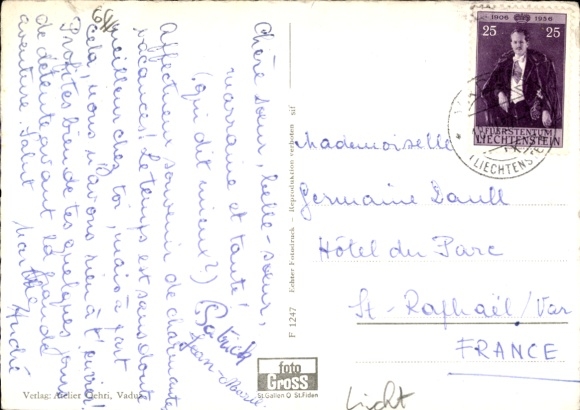 Chère sœur, belle-sœur,
marraine et tante!
(qui dit mieux?)
Affectueux souvenir de charmantes
vacances! Le temps est sans doute
meilleur chez toi, mais à part
cela, nous n'avons rien à t'envier!
Profites bien de tes quelques jours
de détente avant la grande
aventure. Salut
André
1906 1956
25 25
FÜRSTENTUM
LIECHTENSTEIN
(LIECHTENS
Mademoiselle
Germaine
Hôtel du Parc
St-Raphaël/Var
FRANCE
F 1247 Echter Fotodruck - Reproduktion verboten sif
foto
GROSS
St.Gallen O St.Fidan
Verlag: Atelier Vaduz